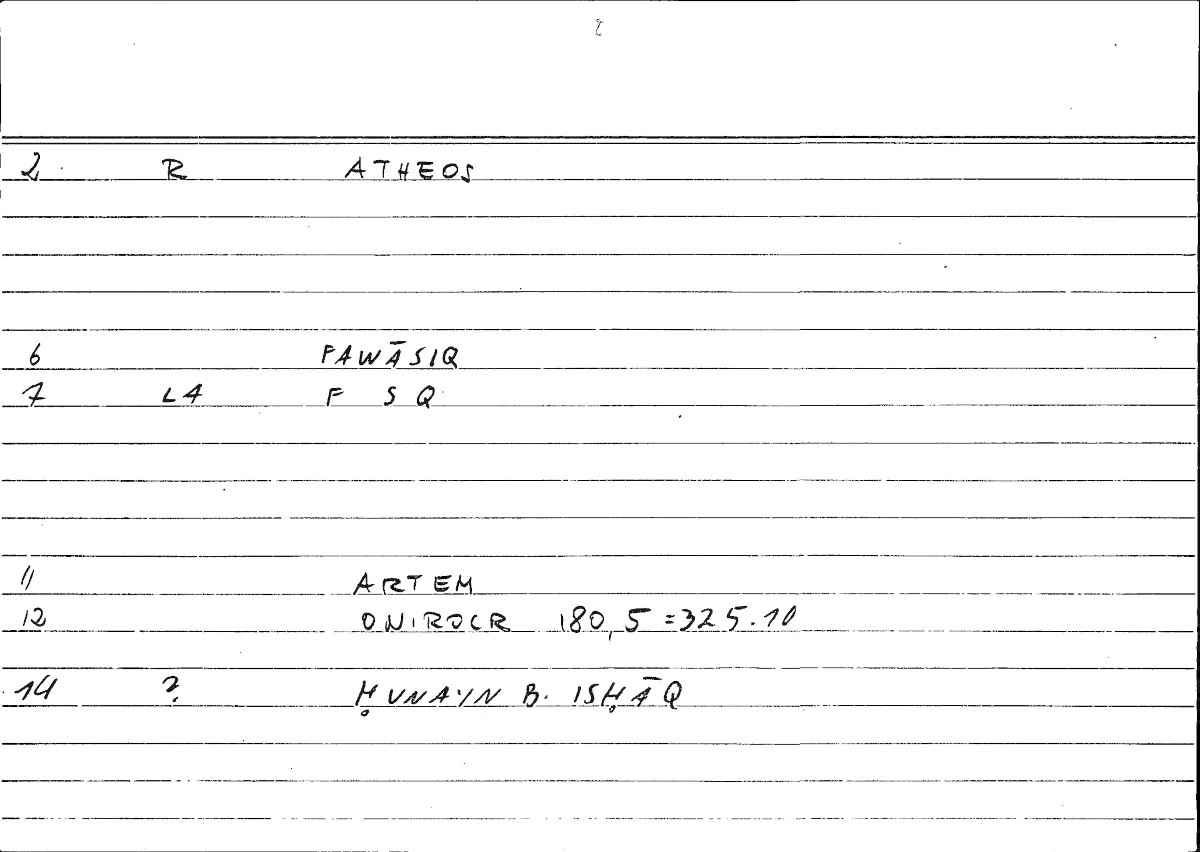 2 R ATHEOS
6 FAWĀSIQ
7 L4 F S Q
11 ARTEM
12 ONIROCR 180,5=325.10
14 ? ḤUNAYN B. ISḤĀQ